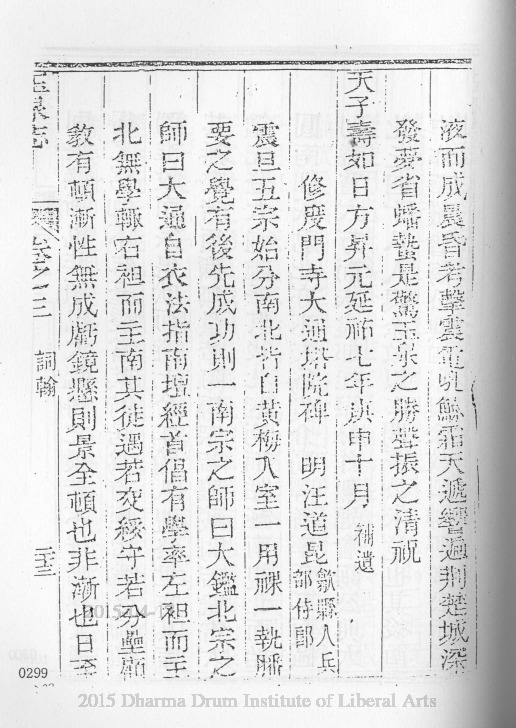 液而成晨昏若擊雲電吼鯨霜天遞響遍荆楚城深
發夢省蟠蟄是驚玉泉之勝聲振之清祝
天子壽如日方昇元延祐七年庚申十月 補遺
修度門寺大通塔院碑 明汪道昆 歙縣人兵部侍郎
震旦五宗始分南北皆自黃梅入室一用祼一執膰
要之覺有後先成功則一南宗之師曰大鑑北宗之
師曰大通自衣法指南壇經首倡有學率左袒而主
北無學輙右袒而主南其徒遇若交綏守若分壘顧
敎有頓漸性無成虧鏡懸則景全頓也非漸也日至
玉泉志
卷之三
詞翰
三三
0299
2015 Dharma Drum Institute of Liberal Arts